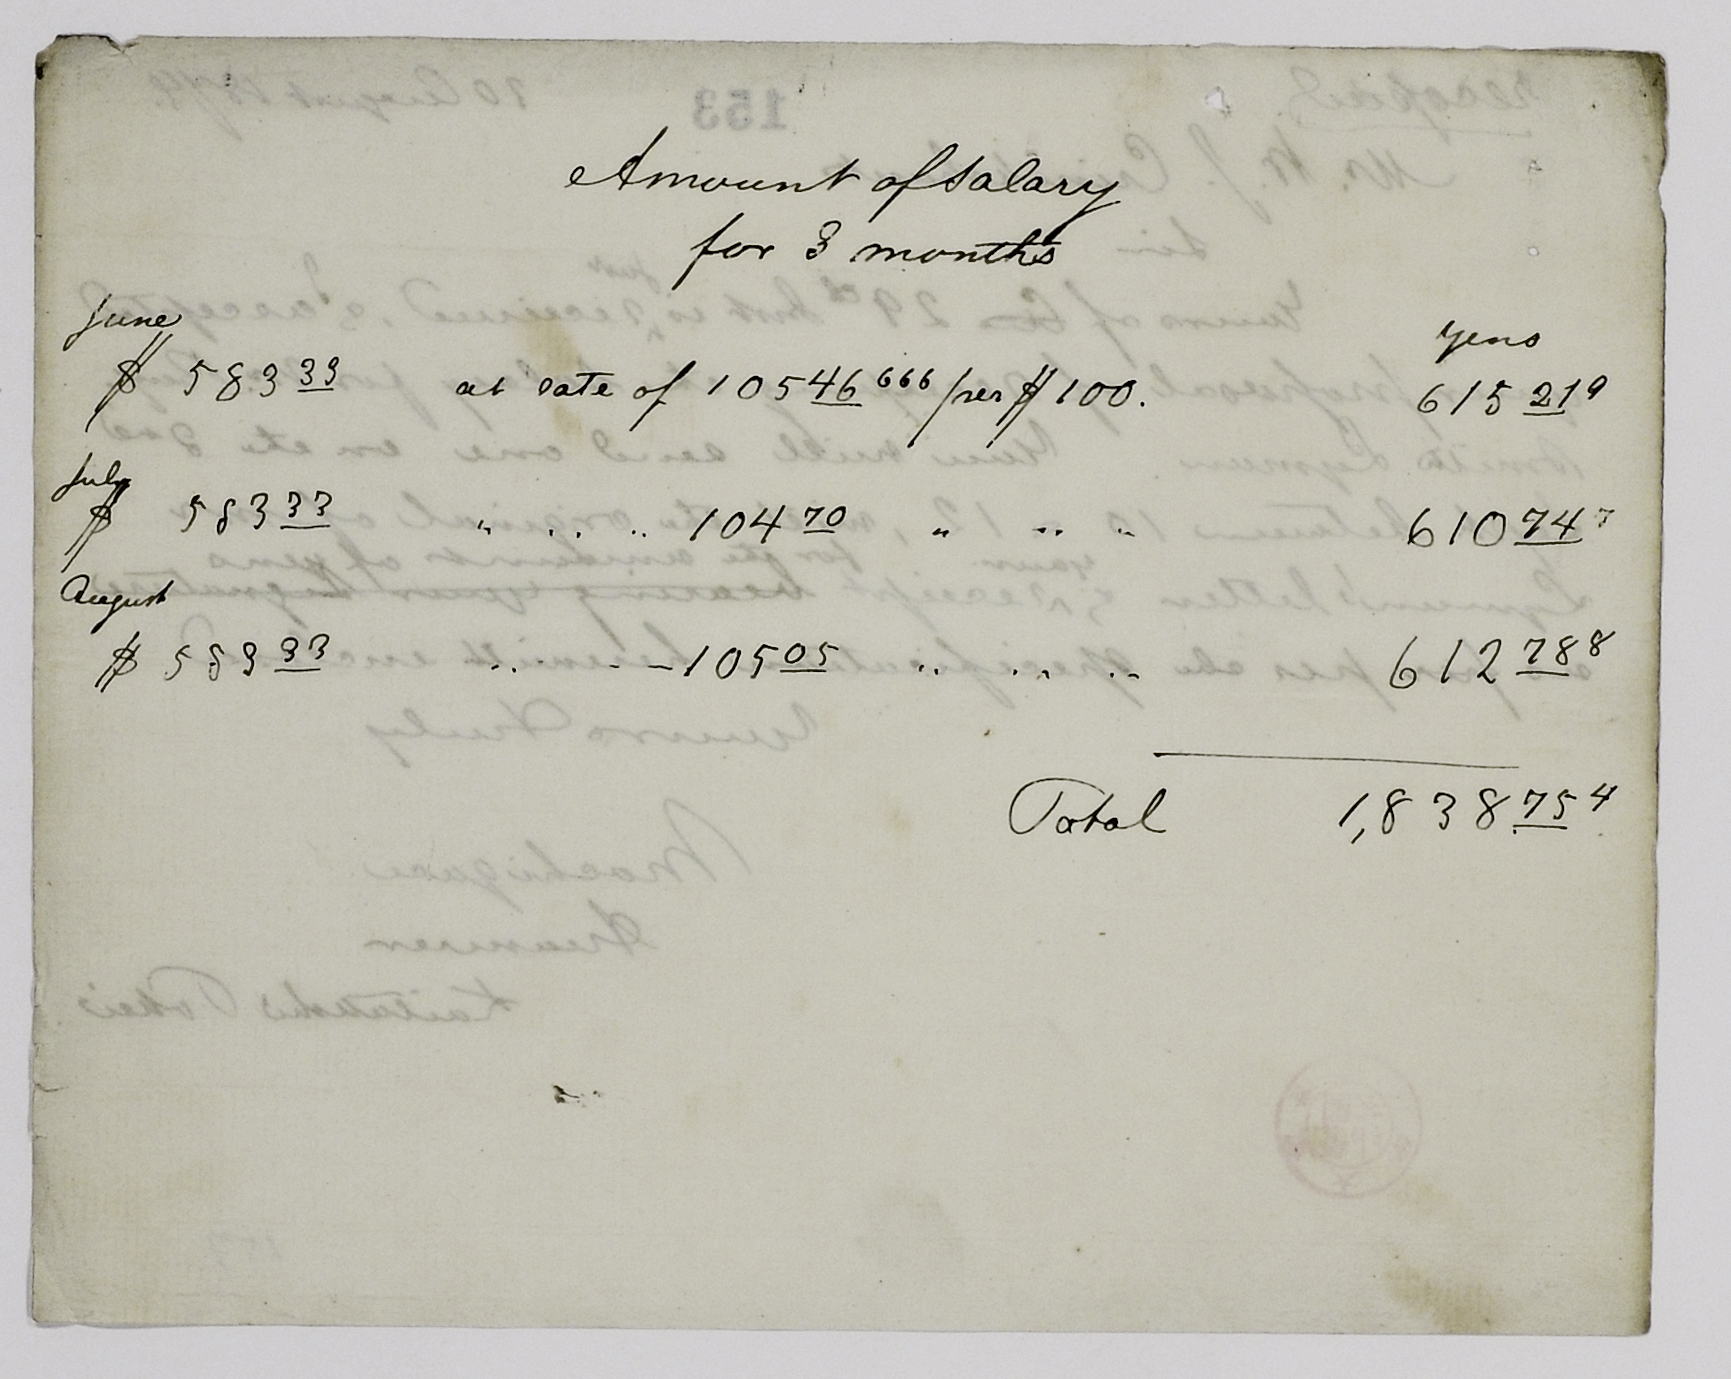 Amount of salary
for 3 months
June
yens
$ 583 33 at rate of 105 46 666 per $ 100. 615 21 9
July
$ 583 33 " " " 104 70 " " " 610 74 7
August
$ 583 33 " " " 105 05 " " " 612 78 8
Total 1,838 75 4